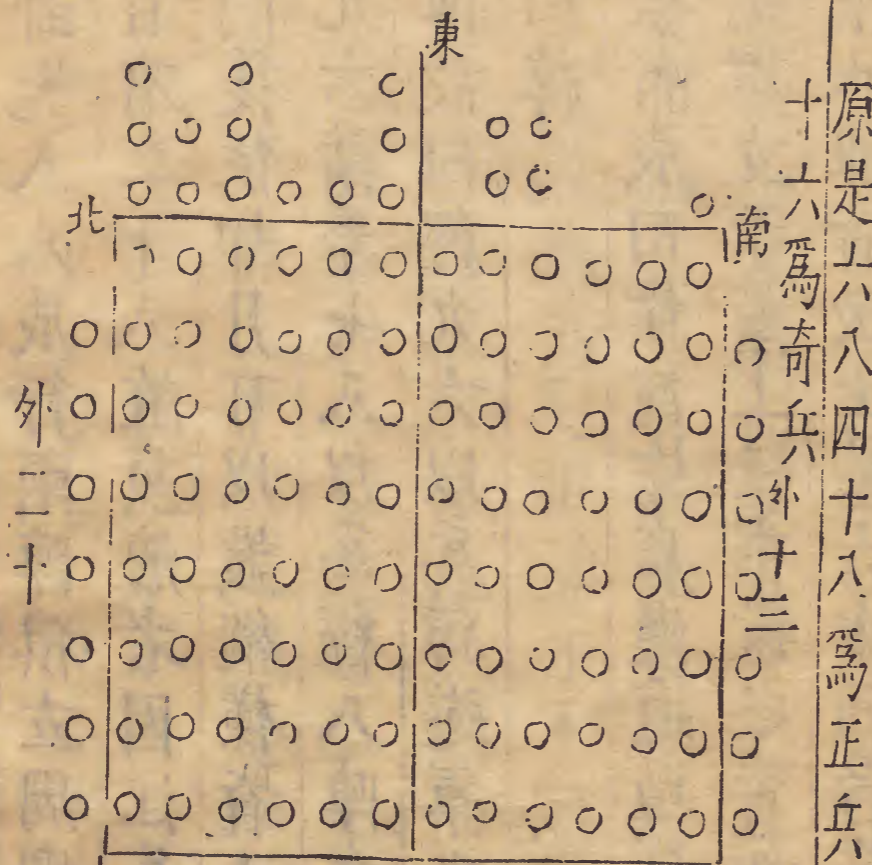 原是六八四十八爲正兵
十六爲奇兵
外十三
南
東
北
外二十